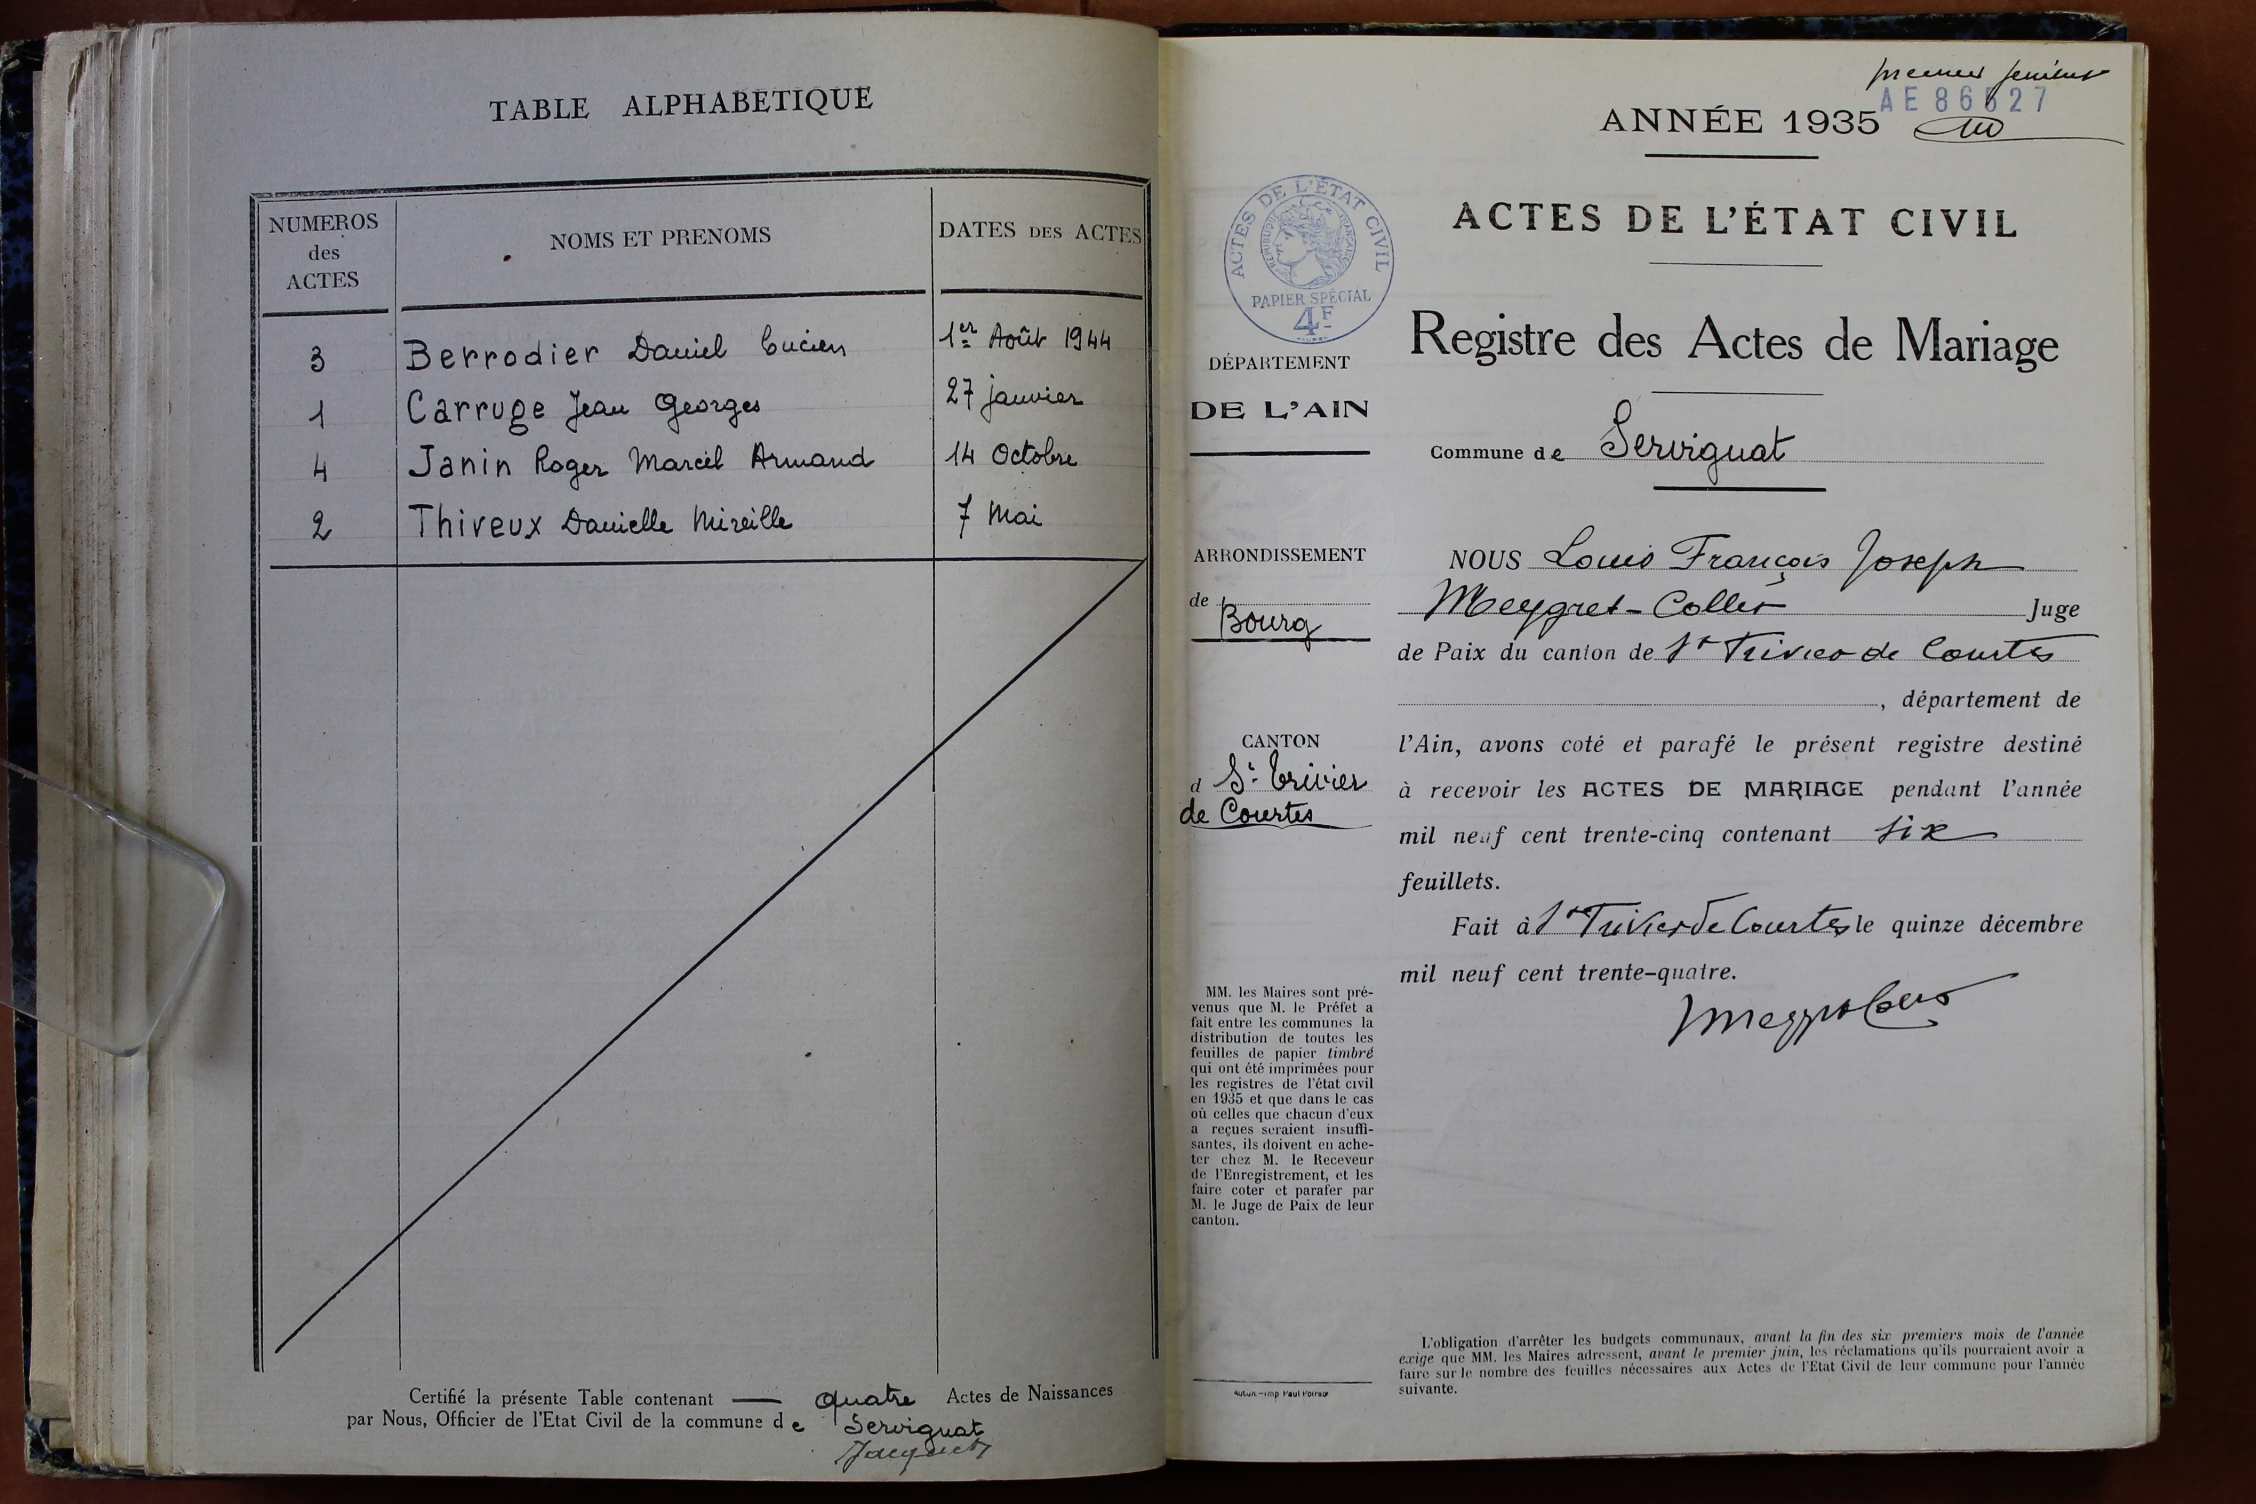 TABLE ALPHABÉTIQUE
NUMEROS
des
ACTES
NOMS ET PRENOMS
DATES DES ACTES
3 Berrodier Daniel Lucien 1er Août 1944
1 Carruge Jean Georges 27 janvier
4 Janin Roger Marcel Armand 14 Octobre
2 Thiveux Danielle Mireille 7 Mai
Certifié la présente Table contenant — quatre Actes de Naissances
par Nous, Officier de l'Etat Civil de la commune de Servignat
Jacquet
premier feuillet
AE 86527
ANNÉE 1935
ACTES DE L'ÉTAT CIVIL
RÉPUBLIQUE FRANÇAISE
PAPIER SPÉCIAL
4F
ACTES DE L'ÉTAT CIVIL
Registre des Actes de Mariage
DÉPARTEMENT
DE L'AIN
Commune de Servignat
ARRONDISSEMENT
de
Bourg
CANTON
d St Trivier
de Courtes
MM. les Maires sont pré-
venus que M. le Préfet a
fait entre les communes la
distribution de toutes les
feuilles de papier timbré
qui ont été imprimées pour
les registres de l'état civil
en 1935 et que dans le cas
où celles que chacun d'eux
a reçues seraient insuffi-
santes, ils doivent en ache-
ter chez M. le Receveur
de l'Enregistrement, et les
faire coter et parafer par
M. le Juge de Paix de leur
canton.
Autun.-Imp Paul Poirson
NOUS Louis François Joseph
Meygret-Collet Juge
de Paix du canton de St Trivier de Courtes
, département de
l'Ain, avons coté et parafé le présent registre destiné
à recevoir les ACTES DE MARIAGE pendant l'année
mil neuf cent trente-cinq contenant six
feuillets.
Fait à St Trivier de Courtes le quinze décembre
mil neuf cent trente-quatre.
L'obligation d'arrêter les budgets communaux, avant la fin des six premiers mois de l'année
exige que MM. les Maires adressent, avant le premier juin, les réclamations qu'ils pourraient avoir a
faire sur le nombre des feuilles nécessaires aux Actes de l'Etat Civil de leur commune pour l'année
suivante.